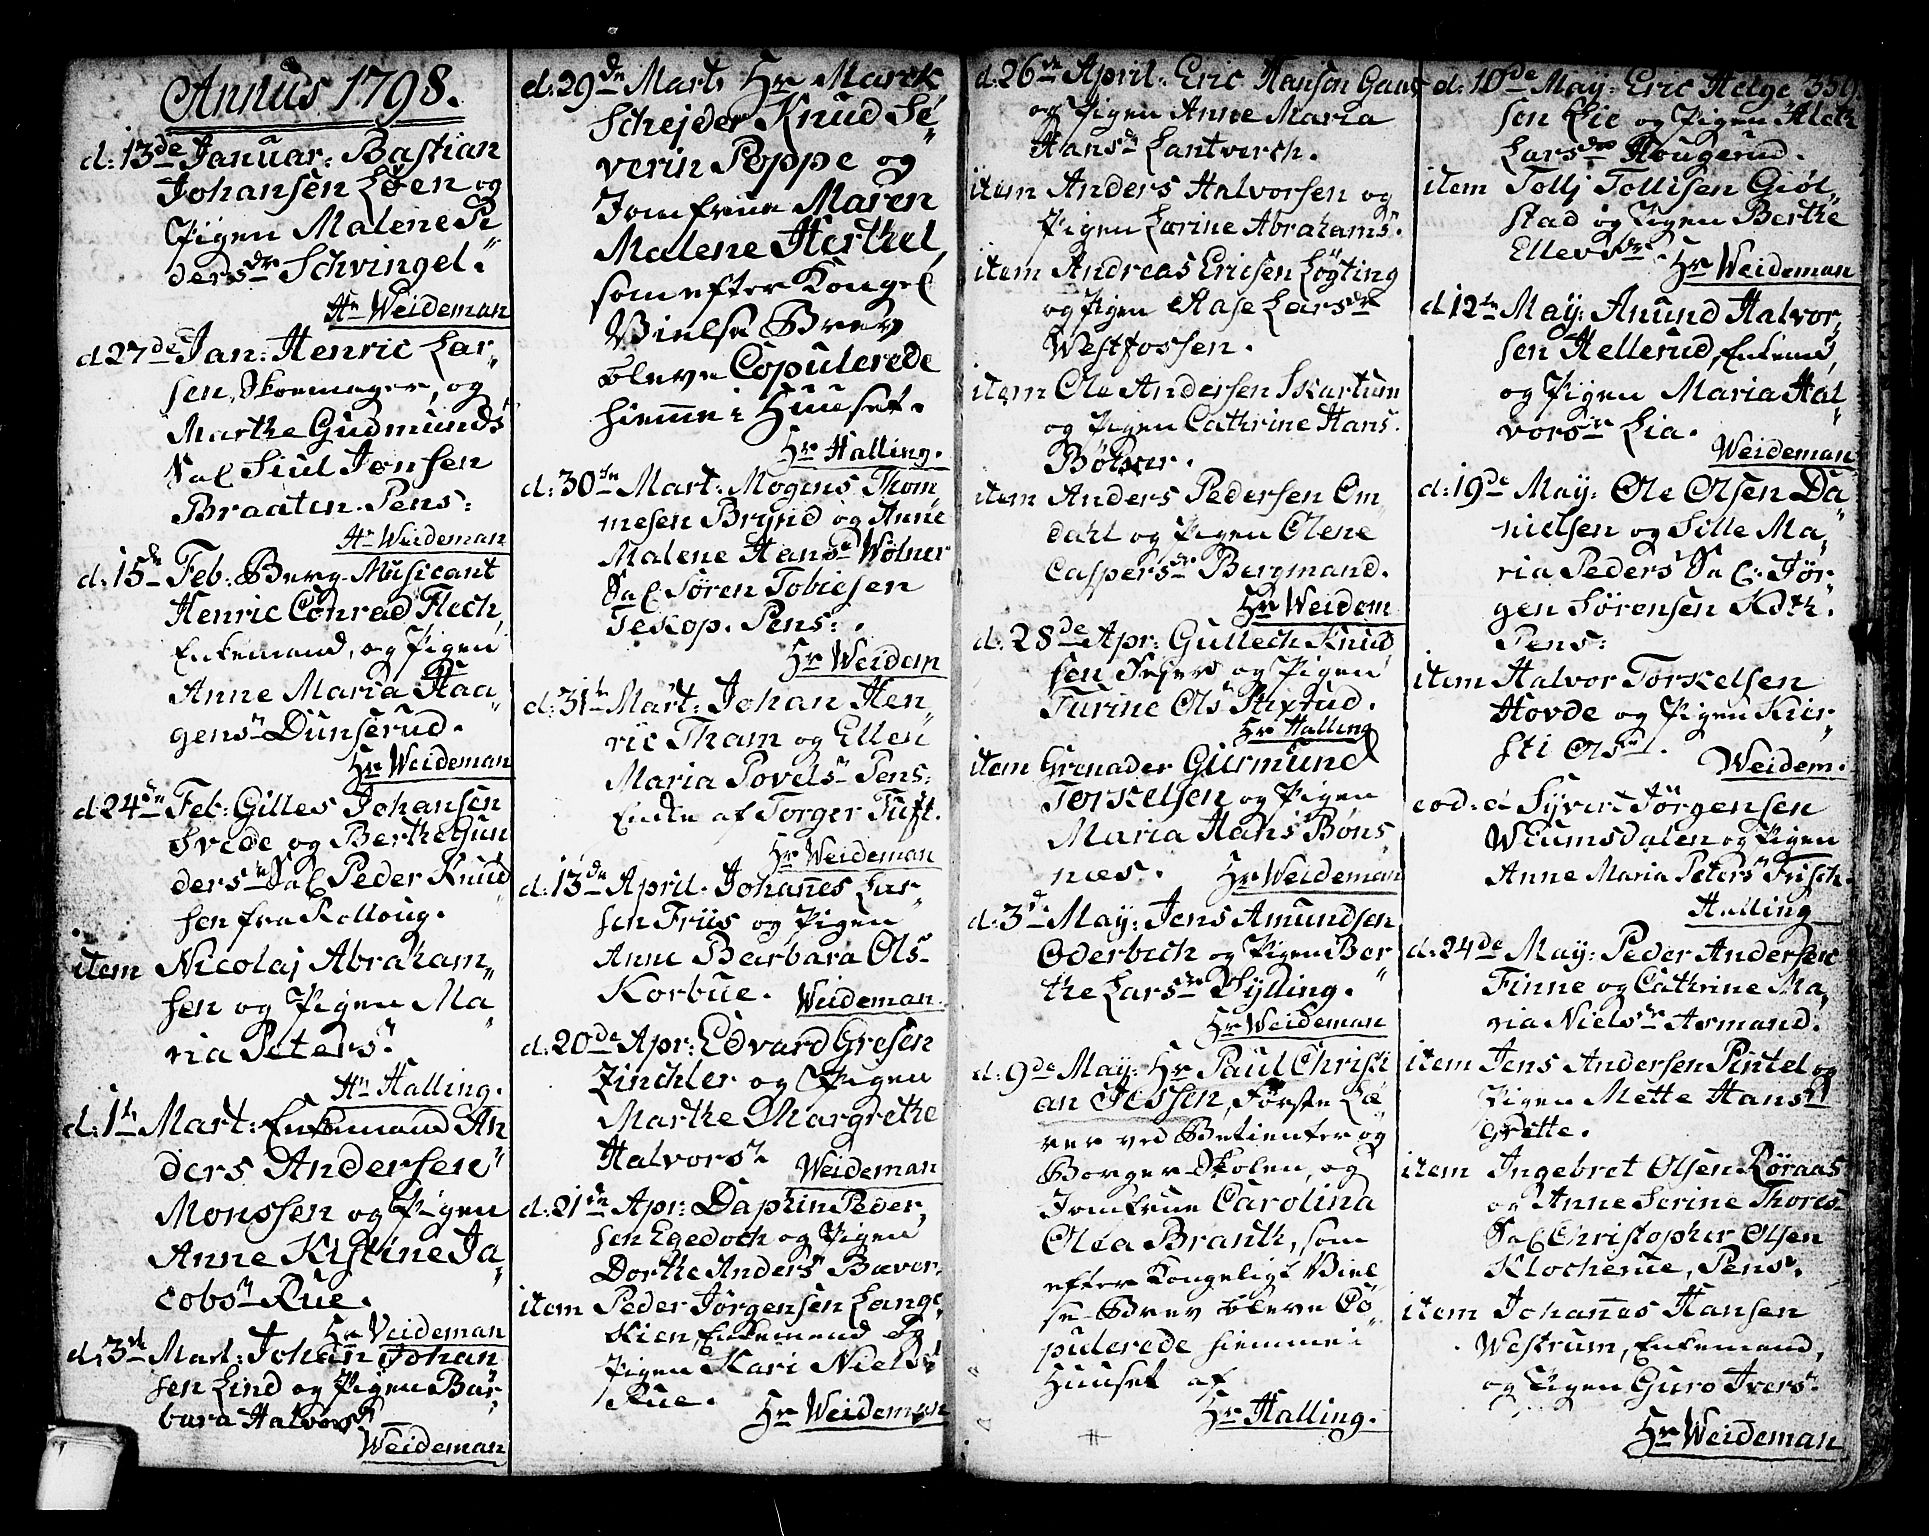 Annus 1798.
d: 13de Januar: Bastian
Johansen Løen og
Pigen Malene Pe
dersdr Schvingel.
Hr Weideman
d 27de Jan: Henric Lar-
sen, Skoemager, og
Marthe Gudmunds
Sal Siul Jonsen
Braaten. Pens:
Hr Weideman
d: 15de Feb: Berg-Musicant
Henric Conrad Flech,
Enkemand, og Pigen
Anne Maria Haa-
gensdr Dunserud.
Hr Weideman
d: 24de Feb: Gilles Johansen
og Berthe Gun
dersdr Sal Peder Knud
sen fra Kolloug.
item Nicolaj Abraham-
sen og Pigen Ma-
ria Peters.
Hr Halling.
d: 1te Mart: Enkemand An
ders Andersen
Monssen og Pigen
Anne Kistine Ja-
cobsdr Rue.
Hr Weideman
d: 3de Mart: Johan Johan
sen Lind og Pigen Bar-
bara Halvorsdr
Weideman
d: 29de Mart: Hr Marck
Schejder Knud Se-
verin Poppe og
Jomfrue Maren
Malene Herthel,
som efter Kongel
Vielse Brev
bleve Copulerede
hiemme i Huuset.
Hr Halling.
d: 30te Mart: Mogens Thom-
mesen Brynd og Anne
Malene Hansdr Wølner
Sal Sören Tobiesen
Teskop. Pens:.
Hr Weidem
d: 31te Mart: Johan Hen-
ric Tham og Ellen
Maria Povelsdr Pens:
Enke af Torger Tuft.
Hr Weideman
d: 13de April. Johannes Lar-
sen Friis og Pigen
Anne Barbara Ols-
Korbue. Weideman.
d: 20de Apr: Edvard Gresen
Zinchler og Pigen
Marthe Margrethe
Halvorsdr Weideman
d: 21de Apr: Daphin Peder-
sen Egedoch og Pigen
Dorthe Anders Bævor.
item Peder Jørgensen Lang-
Kien, Enkemand og
Pigen Kari Niels
Rue.
Hr Weideman
d: 26de April: Eric Hansen Gaas
og Pigen Anne Maria
Hansdr Lantverch.
item Anders Halvorsen og
Pigen Larine Abrahams.
item Andreas Ericsen Løgting
og Pigen Aase Larsdr
Westfossen.
item Ole Andersen Skartum
og Pigen Cathrine Hans.
Bøbser.
item Anders Pedersen Om
dahl og Pigen Olene
Caspersdr Bergmand.
Hr Weidem
d: 28de Apr: Gullech Knud
sen Sejer og Pigen
Turine Ols Stixrud.
Hr Halling
item Grenader Gusmund
Torkelsen og Pigen
Maria Hans Bøns
næs. Hr Weideman
d: 3de May: Jens Amundsen
Oderbich og Pigen Ber-
the Larsdr Sylling.
Hr Weideman
d: 9de May: Hr Paul Christi
an Jessen, Første Læ-
rer ved Betienter og
Borger Skolen, og
Jomfrue Carolina
Olea Branth, som
efter Kongeligt Viel
se-Brev bleve Co-
pulerede hiemme i
Huuset af
Hr Halling.
d: 10de May: Eric Helge 350.
sen Lie og Pigen Aleth
Larsdr Hougerud.
item Tollj Tollisen Giøl-
stad og Pigen Berthe
Ellevsdr. Hr Weideman
d 12te May: Anund Halvor-
sen Hellerud, Enkemd,
og Pigen Maria Hal-
vorsdr Lia.
Weideman
d: 19de May: Ole Olsen Da-
nielsen og Sille Ma-
ria Peders Sal: Jør-
gen Sørensen Koth.
Pens:
item Halvor Torkelsen
Hovde og Pigen Kier-
sti Olsdr.
Weidem.
eod: d Syver Jørgensen
Wiumsdalen og Pigen
Anne Maria Peters Frisch.
Halling
d: 24de May: Peder Andersen
Finne og Cathrine Ma-
ria Nielsdr Asmand.
item Jens Andersen Pintel og
Pigen Mette Hansd
Grette.
item Ingebret Olsen Røraas
og Anne Serine Thores
Sal Christopher Olsen
Klocherue, Pens.
item Johannes Hansen
Westrum, Enkemand,
og Pigen Guro Ivers.
Hr Weideman